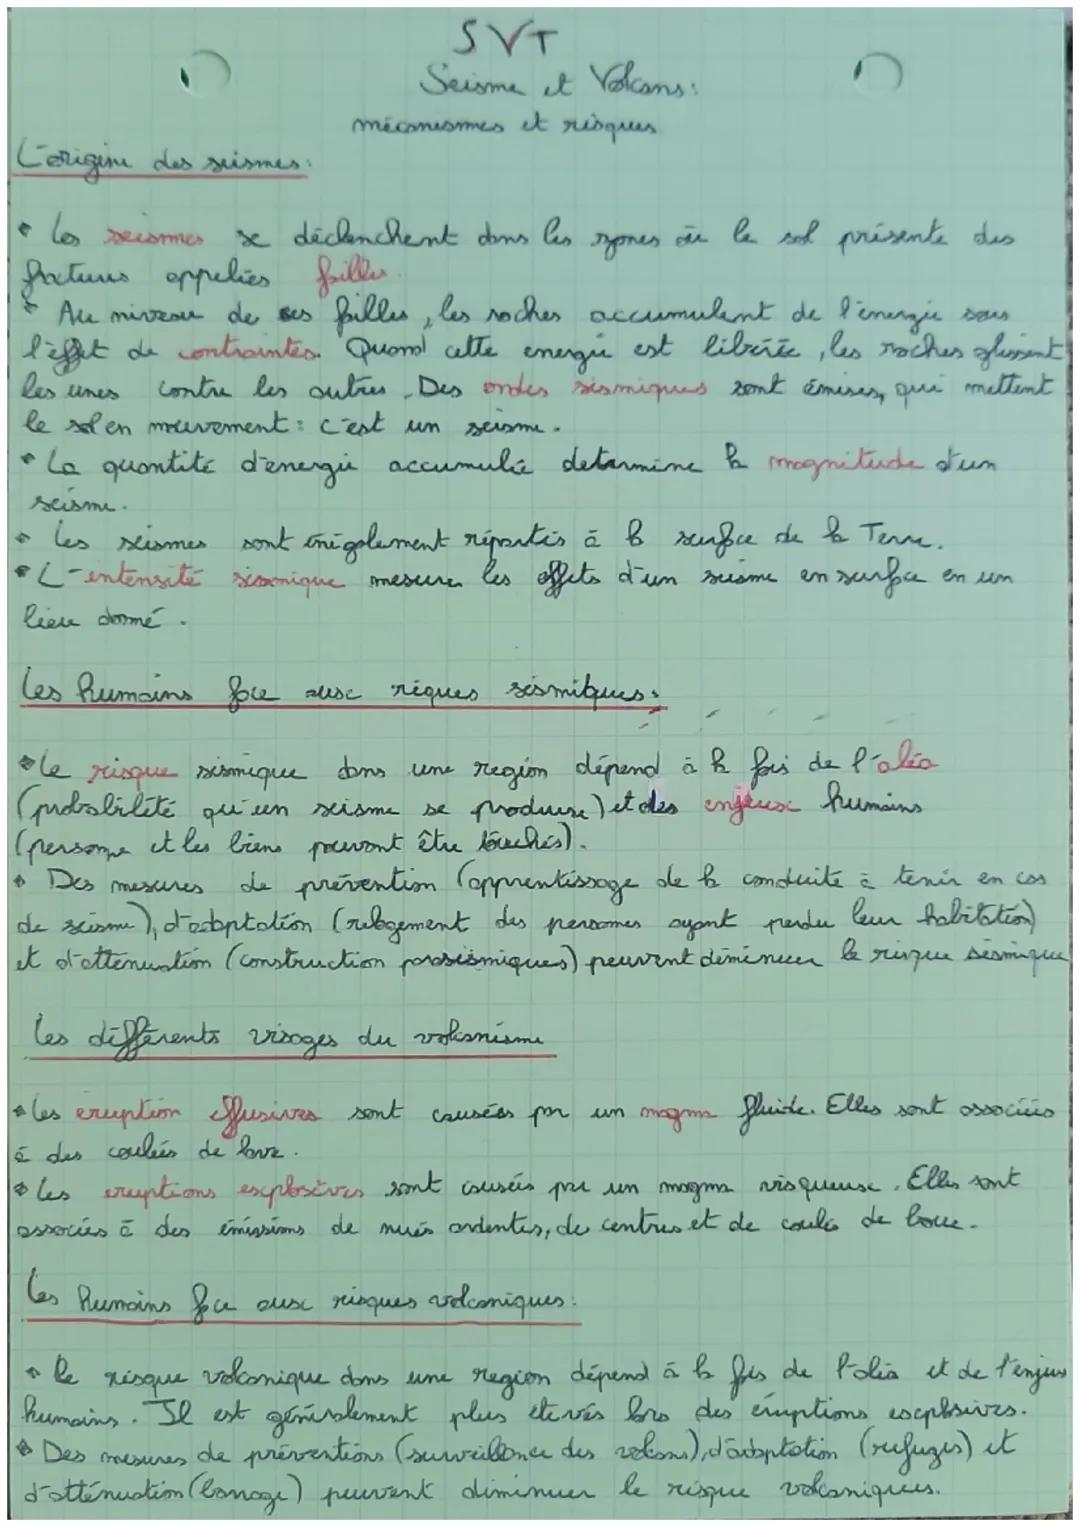 SVT
Seisme et Volcans:
mécanismes et risques
L'origine des seismes:
Les seismes se déclenchent dans les zones où le sol présente des
fractures appelées failles.
Au niveau de ces failles, les roches accumulent de l'énergie sous
l'effet de contraintes. Quand cette energie est libérée, les roches glissent
les unes contre les autres. Des ondes sismiques sont émises, qui mettent
le sol en mouvement: c'est un seisme.
La quantité d'energie accumulée determine la magnitude d'un
seisme.
Les seismes sont inégalement répartis à la surface de la Terre.
L'intensité sismique mesure les effets d'un seisme en surface en un
lieu donné.
Les humains face aux riques sismiques:
Le risque sismique dans une region dépend à la fois de l'aléa
(probabilité qu'un seisme se produise) et des enjeux humains
(personne et les biens pouvant être touchés).
Des mesures de prévention (apprentissage de la conduite à tenir en cas
de seisme), d'adaptation (relogement des personnes ayant perdu leur habitation)
et d'atténuation (construction parasismiques) peuvent diminuer le risque sismique
Les différents visages du volcanisme
Les eruption effusives sont causées par un magma fluide. Elles sont associées
à des coulées de lave.
Les eruptions explosives sont causées par un magma visqueuse. Elles sont
associés à des émissions de nués ardentes, de centres et de coulés de boue.
Les humains face aux risques volcaniques:
Le risque volcanique dans une region dépend à la fois de l'aléa et de l'enjeu
humains. Il est généralement plus élevés lors des éruptions explosives.
Des mesures de préventions (surveillance des volcans), d'adaptation (refuges) et
d'atténuation (barrage) peuvent diminuer le risque volcaniques.